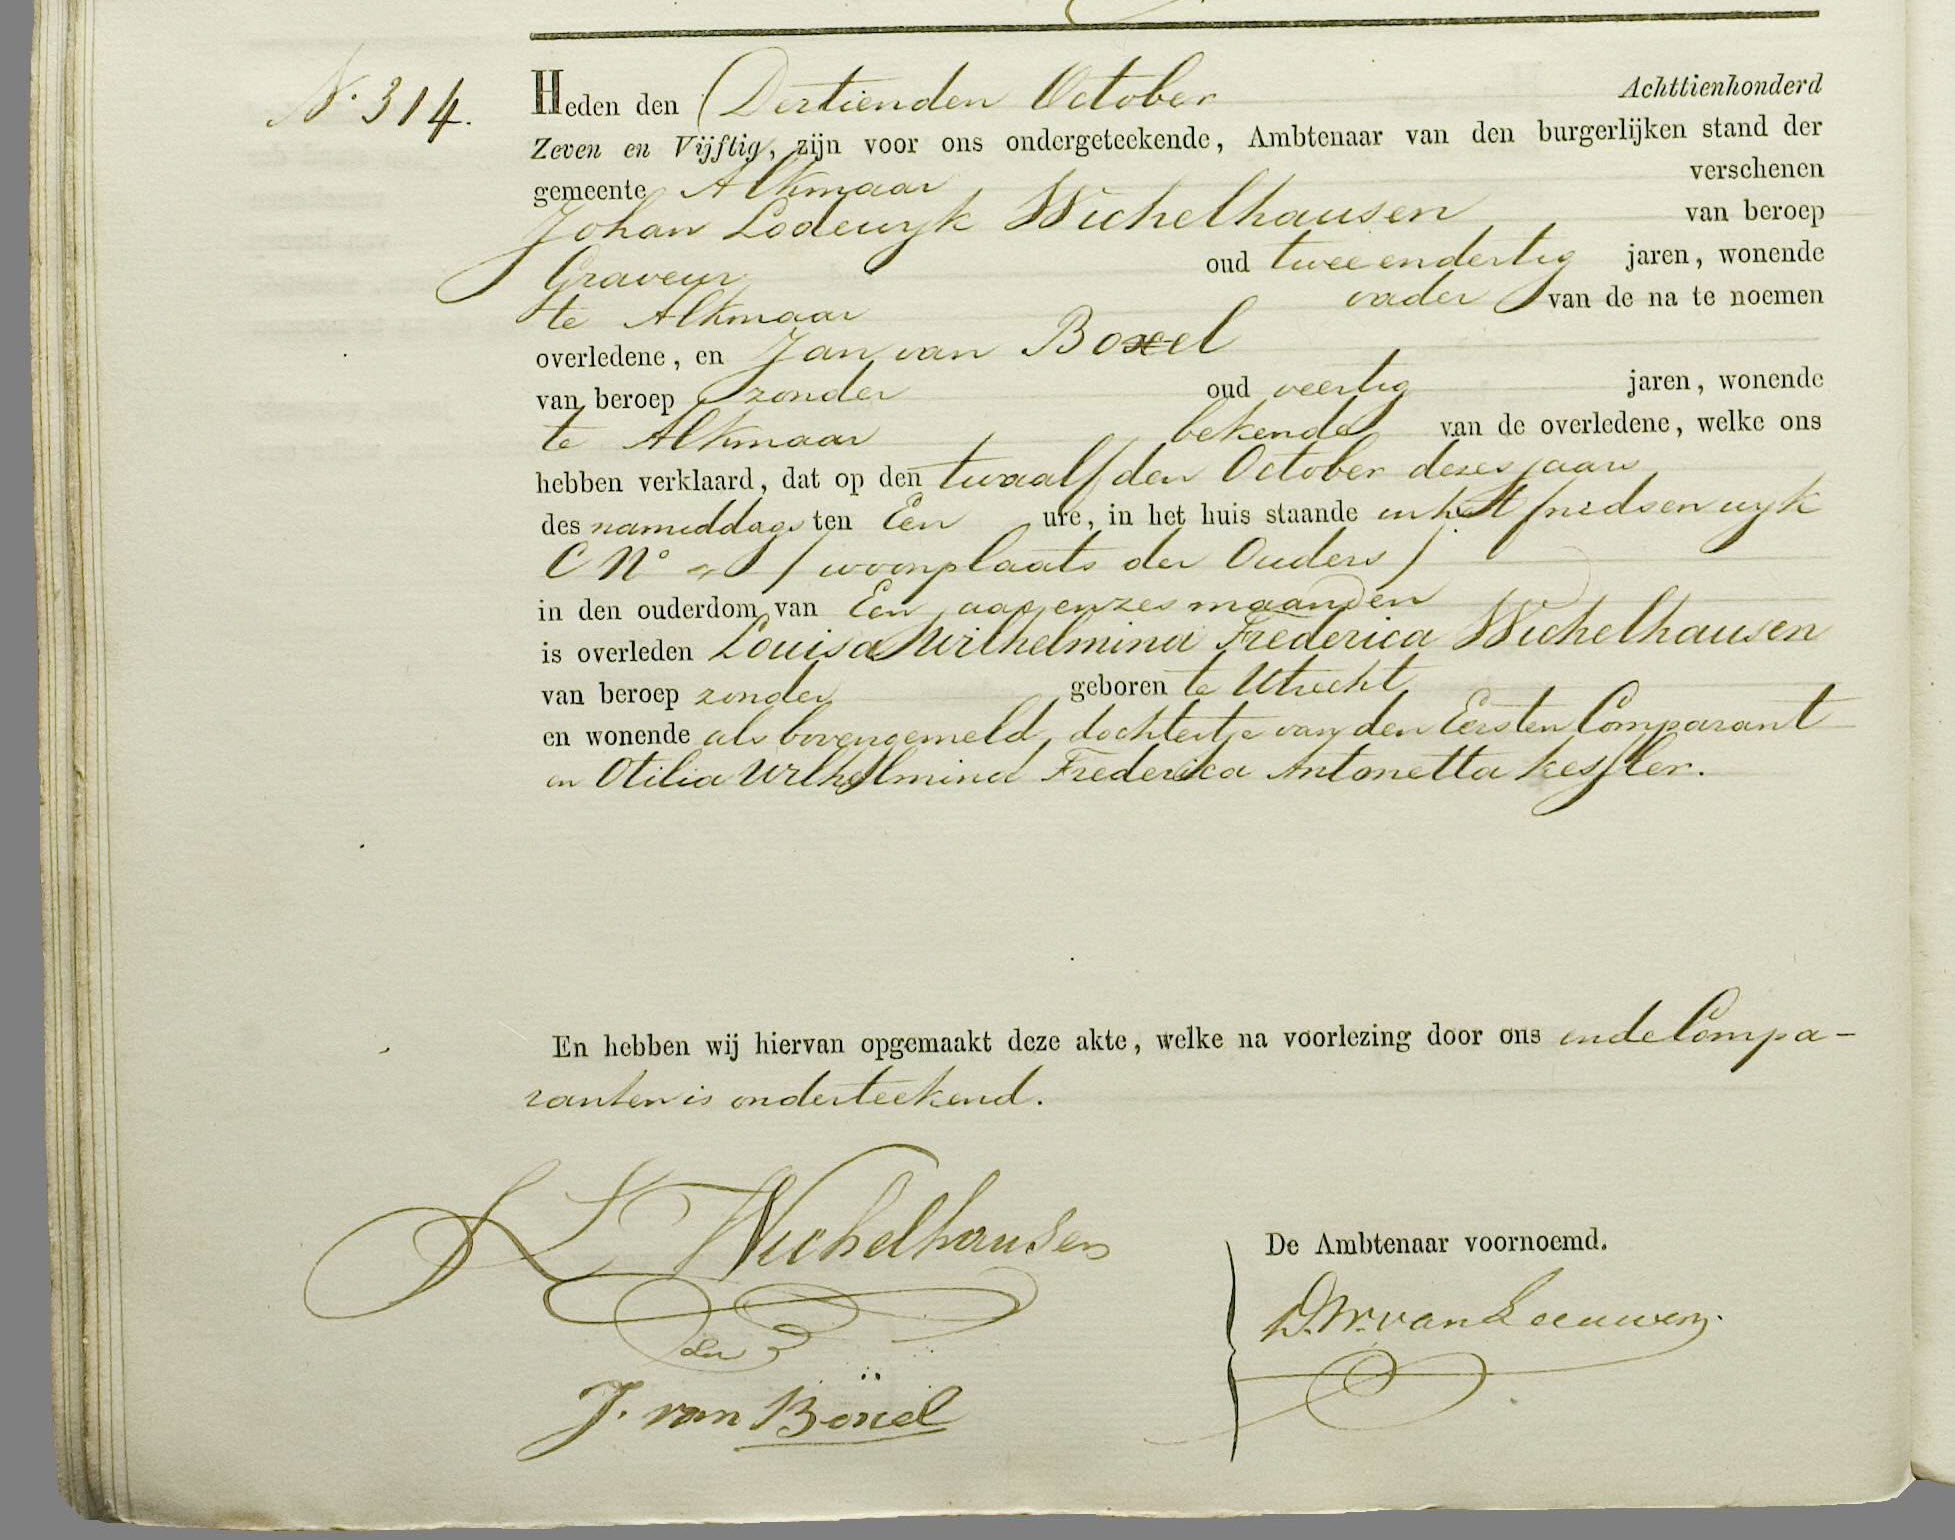 N. 314.
Heden den Dertienden October Achttienhonderd
Zeven en Vijftig, zijn voor ons ondergeteekende, Ambtenaar van den burgerlijken stand der
gemeente Alkmaar verschenen
Johan Lodewyk Wichelhausen van beroep
Graveur oud twee en dertig jaren, wonende
te Alkmaar vader van de na te noemen
overledene, en Jan van Boxel
van beroep zonder oud veertig jaren, wonende
te Alkmaar bekende van de overledene, welke ons
hebben verklaard, dat op den twaalfden October dezes jaars
des namiddags ten Een ure, in het huis staande in het
C No / woonplaats der Ouders /
in den ouderdom van Een jaar en zes maanden
is overleden Louisa Wilhelmina Frederica Wichelhausen
van beroep zonder geboren te Utrecht
en wonende als bovengemeld, dochtertje van den Eersten Comparant
en Otilia Wilhelmina Frederica Antonetta Kessler.
En hebben wij hiervan opgemaakt deze akte, welke na voorlezing door ons en de Compa-
ranten is onderteekend.
L Wichelhausen
De Ambtenaar voornoemd.
D. W. van Leeuwen.
J. van Böxel